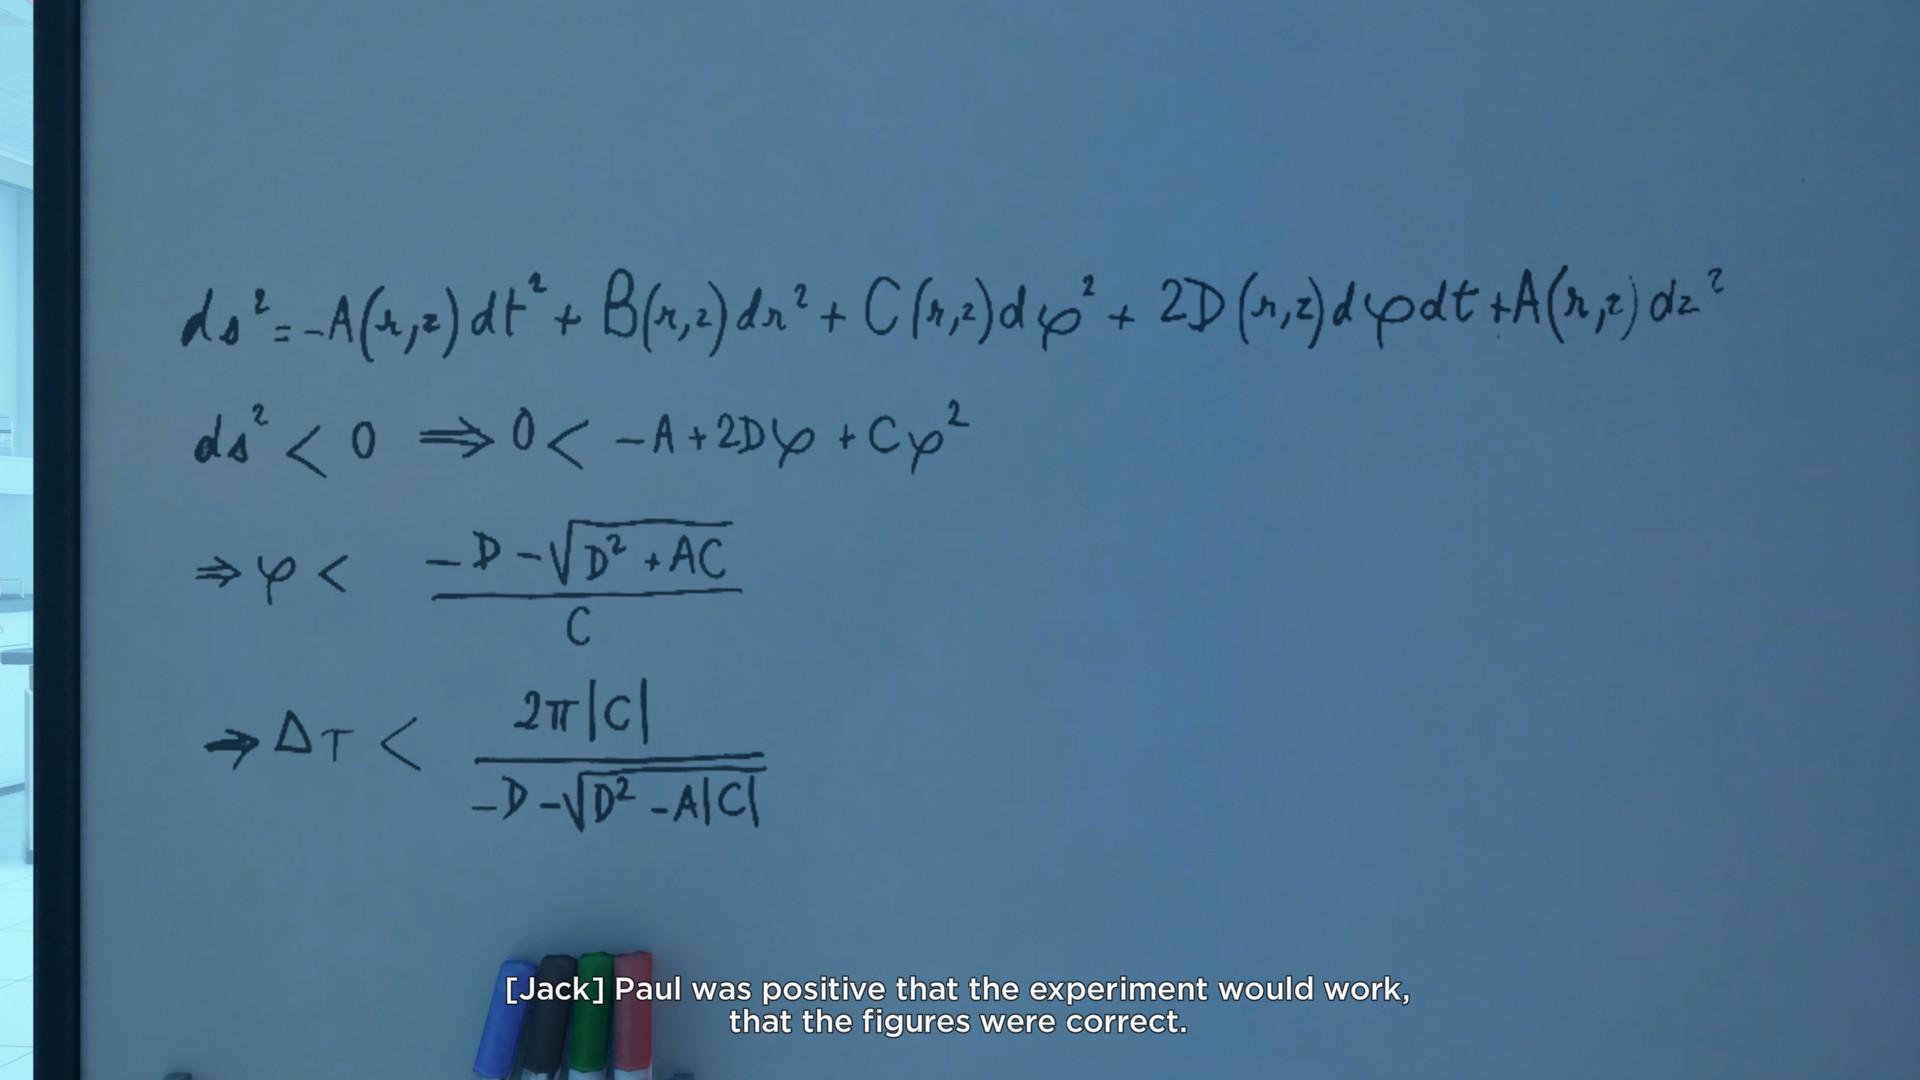 ds² = -A(r,z)dt² + B(r,z)dr² + C(r,z)dφ² + 2D(r,z)dφdt + A(r,z)dz²
ds² < 0 ⇒ 0 < -A + 2Dφ + Cφ²
⇒ φ < (-D - √(D² + AC)) / C
⇒ ΔT < 2π|C| / (-D - √(D² - A|C|))
[Jack] Paul was positive that the experiment would work,
that the figures were correct.